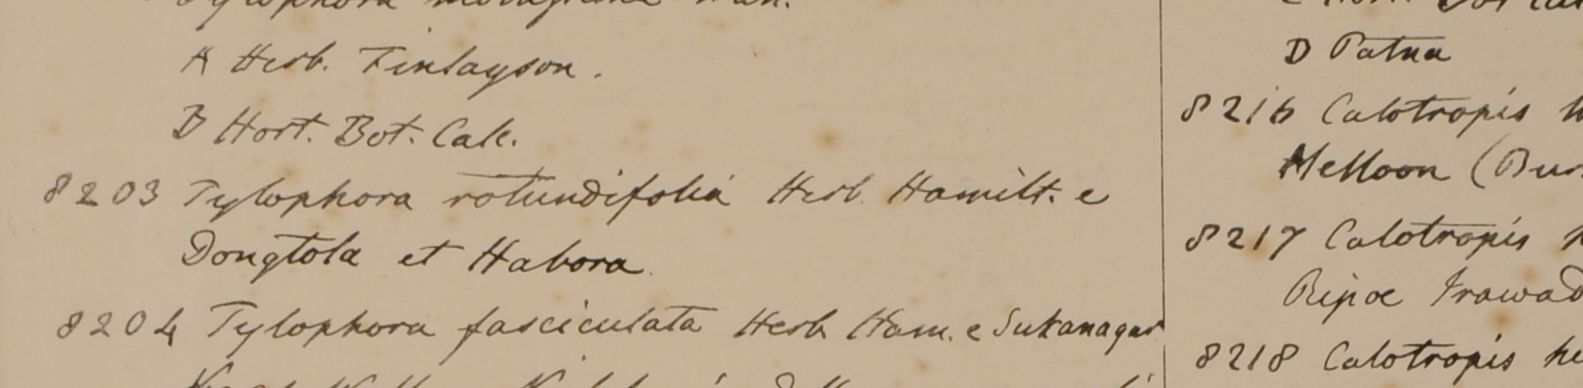 Tylophora
A Herb. Finlayson.
B Hort. Bot. Calc.
8203 Tylophora rotundifolia Herb. Hamilt. e
Dongtola et Habora.
8204 Tylophora fasciculata Herb Ham. e Sukanagar
D Patna
8216 Calotropis
Melloon (Bur
8217 Calotropis
Ripoe Irawad
8218 Calotropis he